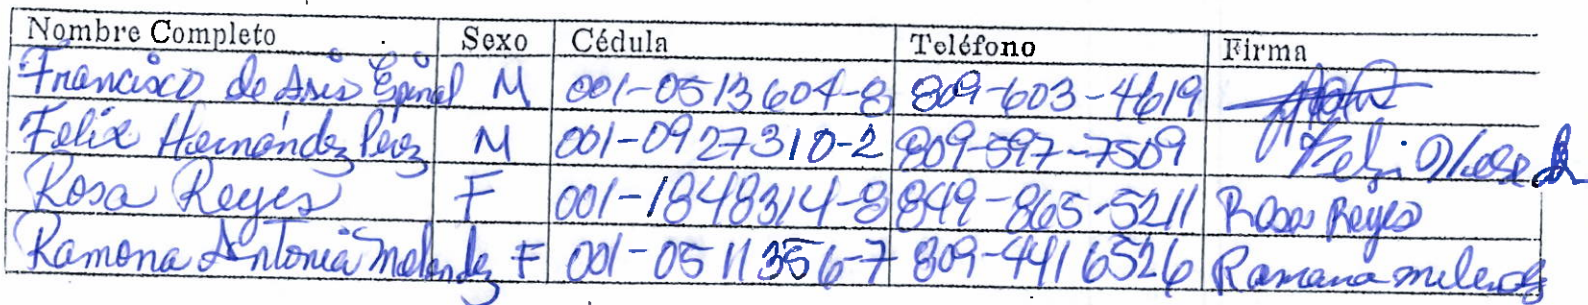 Nombre Completo Sexo Cédula Teléfono Firma
Francisco de Asis Espinal M 001-0513604-8 809-603-4619
Felix Hernández Pérez M 001-0927310-2 809-597-7509
Rosa Reyes F 001-1848314-8 849-865-5211 Rosa Reyes
Ramona Antonia Melendez F 001-0511356-7 809-441 6526 Ramona